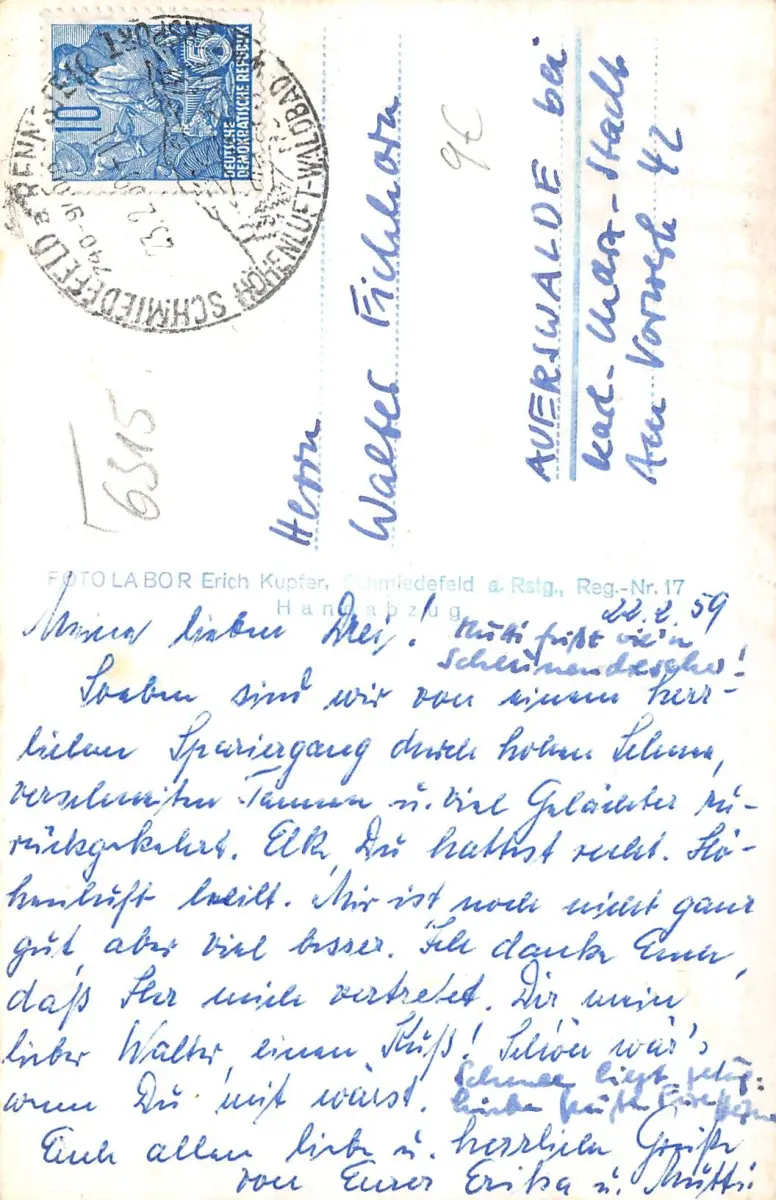 10
5
DEUTSCHE
DEMOKRATISCHE REPUBLIK
SCHMIEDEFELD a RENNSTEIG
HÖHENLUFT-WALDBAD
23.2
9€
6315
Herrn
Walter Eichhorn
AUERSWALDE bei
Karl-Marx-Stadt
Am Vorwerk 42
FOTOLABOR Erich Kupfer, Schmiedefeld a. Rstg., Reg.-Nr. 17
Handabzug
22.2.59
Meine lieben Drei!
Mutti frißt wie'n
Scheunendrescher!
Soeben sind wir von einem herr-
lichen Spaziergang durch hohen Schnee,
verschneiten Tannen u. viel Gelächter zu-
rückgekehrt. Elke, Du hattest recht. Hö-
henluft heilt. Mir ist noch nicht ganz
gut, aber viel besser. Ich danke Euch,
daß Ihr mich vertretet. Dir mein
lieber Walter, einen Kuß! Schön wär's
wenn Du mit wärst.
Schnee liegt
Euch allen liebe u. herzliche Grüße
von Eurer Erika u. Mutti